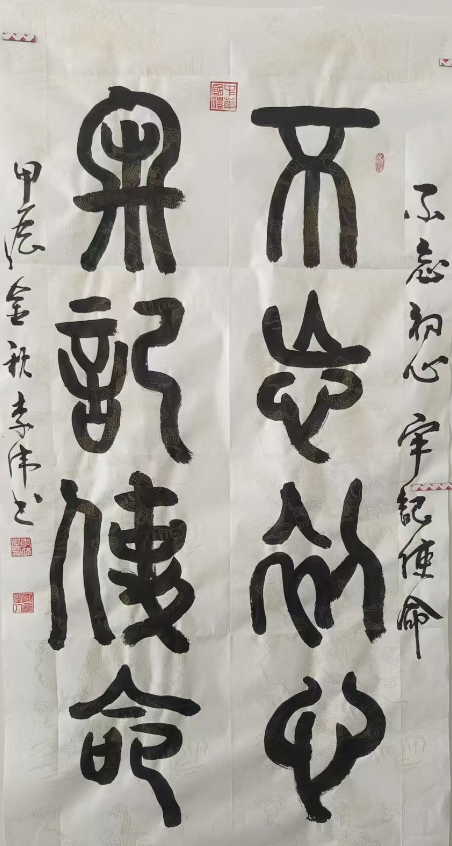 不忘初心 牢記使命
不忘初心
牢記使命
甲辰金秋李伟书